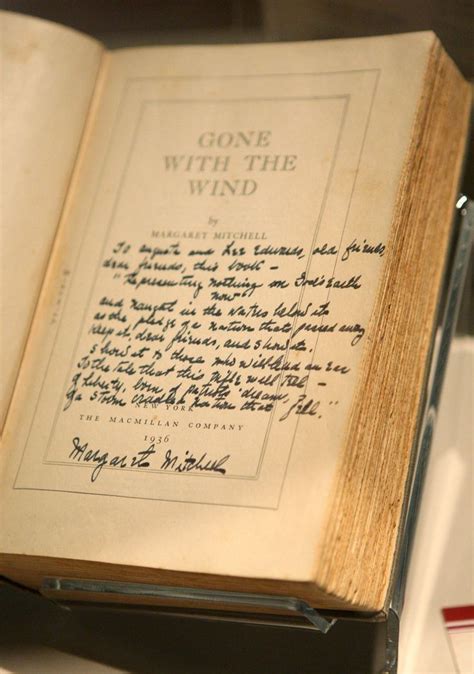 GONE
WITH THE
WIND
by
MARGARET MITCHELL
To Auguste and Lee Edwards, old friends,
dear friends, this book —
"Representing nothing on God's earth
now"
and naught in the waters below it
as the pledge of a nation that passed away
Keep it, dear friends, and show it.
Show it to those who will lend an ear
To the tale that this trifle will tell —
of Liberty, born of patriots' dream,
of a storm cradled nation that fell."
NEW YORK
THE MACMILLAN COMPANY
1936
Margaret Mitchell